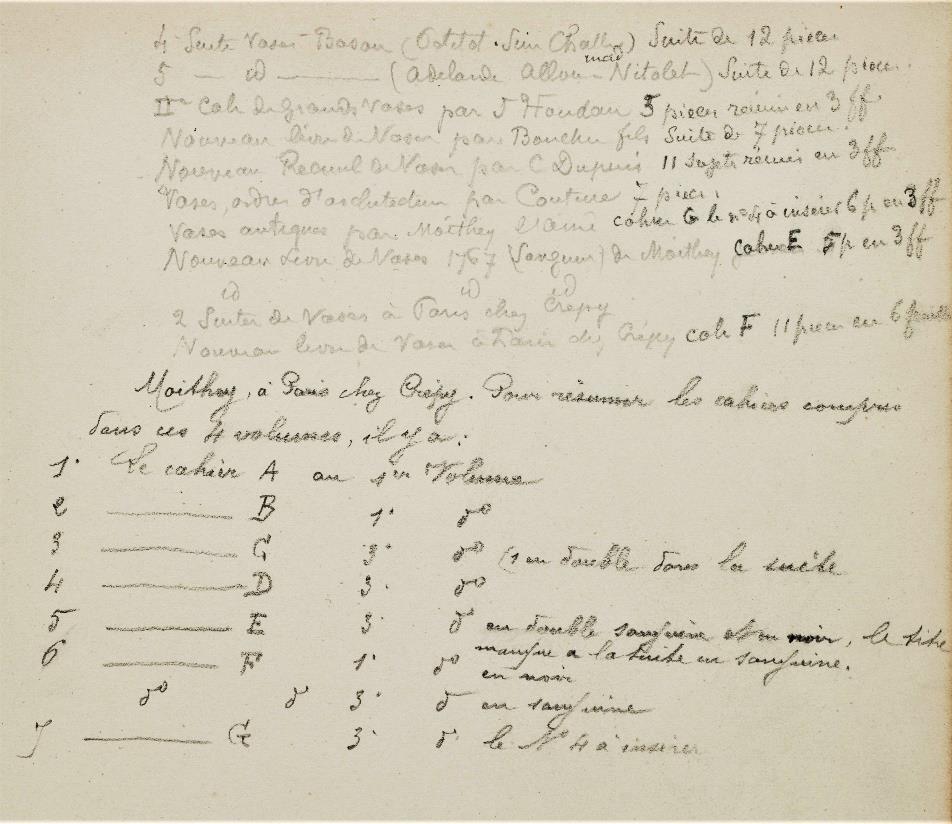 4 Suite Vases Basan (Petitot Sim Challe) Suite de 12 pièces
5 — id — (Adelaide Allou mad Nitolet) Suite de 12 pièces.
IIe Cah de grands Vases par J Houdan 5 pièces réunies en 3 ff
Nouveau livre de Vases par Boucher fils Suite de 7 pièces.
Nouveau Recueil de Vases par C Dupuis 11 sujets réunis en 3 ff
Vases, ordres d'architecture par Couture 7 pièces.
Vases antiques par Moithey l'ainé cahier G le n° 4 à insérer 6 p en 3 ff
Nouveau Livre de Vases 1767 (Sanguine) de Moithey cahier E 5 p en 3 ff
id id id
2 Suites de Vases à Paris chez Crépy
Nouveau livre de Vases à Paris chez Crépy cah F 11 pièces en 6 feuilles
Moithey, à Paris chez Crépy. Pour résumer les cahiers compris
dans ces 4 volumes, il y a :
1° Le cahier A au 1er Volume
2 — B 1° d°
3 — C 3° d° (1 en double dans la suite
4 — D 3° d°
5 — E 3° d° en double sanguine et en noir, le titre
manque a la suite en sanguine.
6 — F 1° d° en noir
d° d° 3° d° en sanguine
7 — G 3° d° le N° 4 à insérer